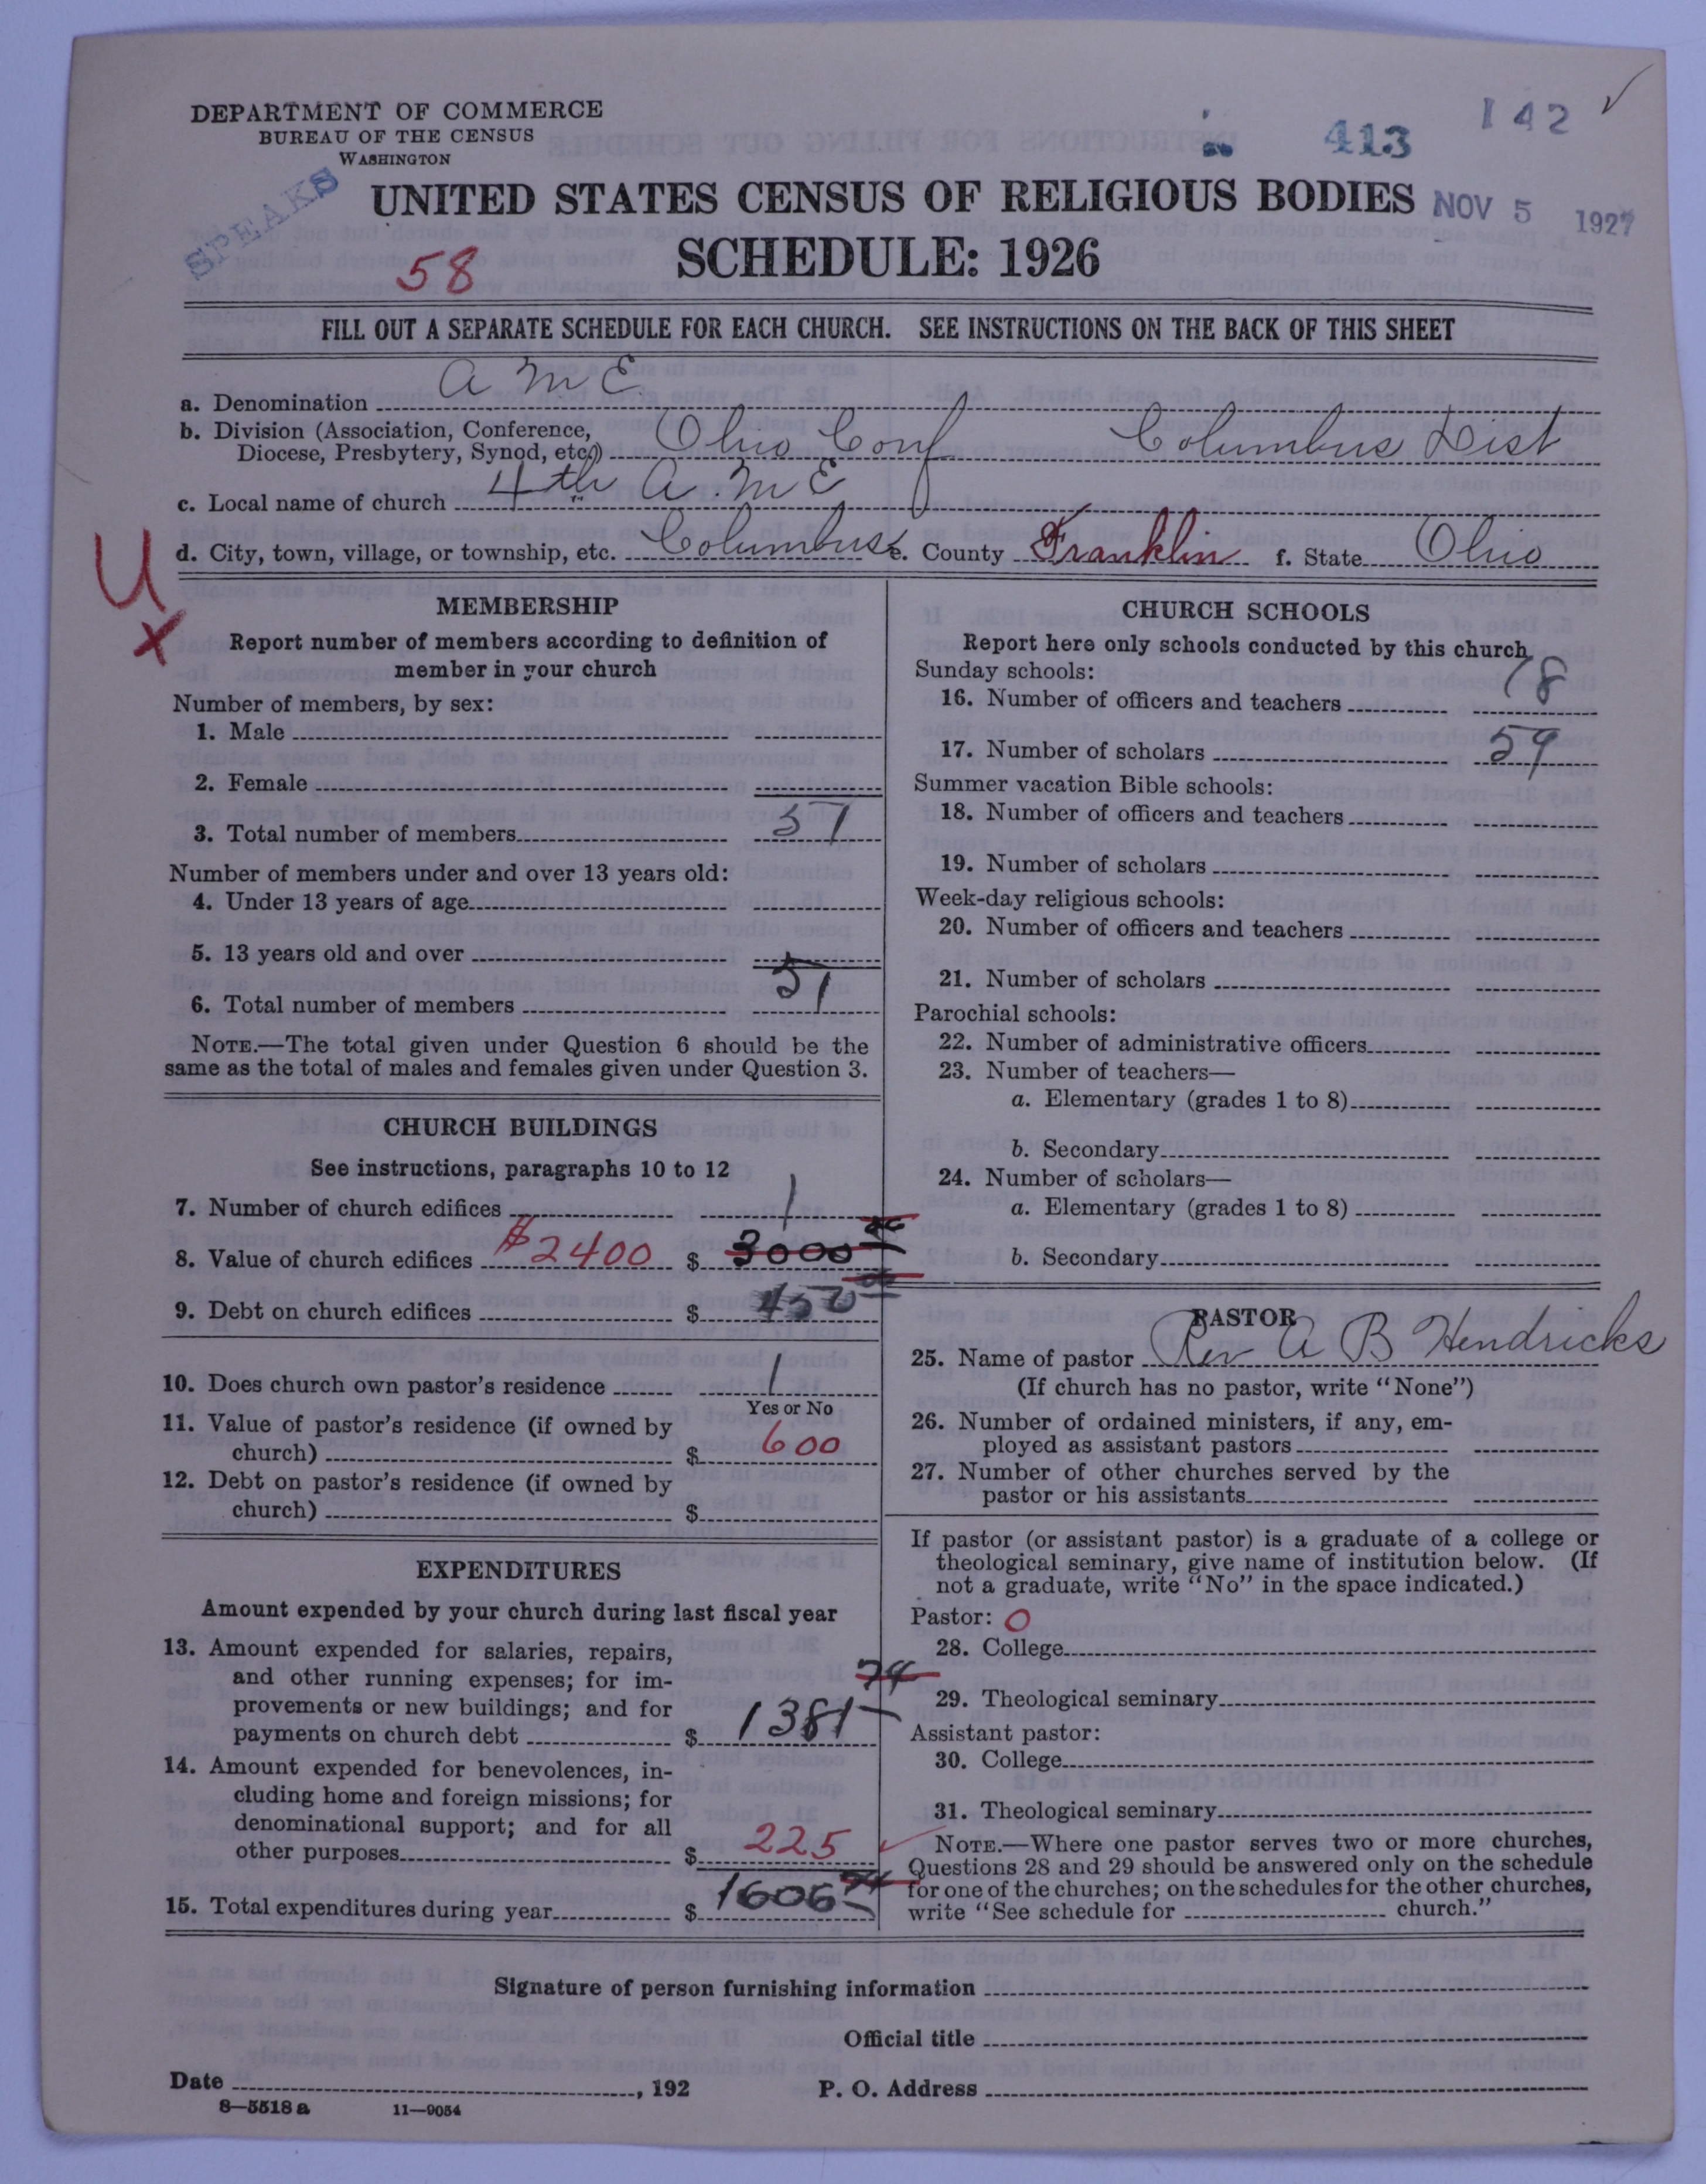 DEPARTMENT OF COMMERCE
BUREAU OF THE CENSUS
WASHINGTON
SPEAKS
413
142 ✓
UNITED STATES CENSUS OF RELIGIOUS BODIES
NOV 5 1927
58
SCHEDULE: 1926
FILL OUT A SEPARATE SCHEDULE FOR EACH CHURCH. SEE INSTRUCTIONS ON THE BACK OF THIS SHEET
a. Denomination A M E
b. Division (Association, Conference,
Diocese, Presbytery, Synod, etc.) Ohio Conf Columbus Dist
c. Local name of church 4th A. M E
d. City, town, village, or township, etc. Columbus e. County Franklin f. State Ohio
U
X
MEMBERSHIP
Report number of members according to definition of
member in your church
Number of members, by sex:
1. Male
2. Female
3. Total number of members 51
Number of members under and over 13 years old:
4. Under 13 years of age
5. 13 years old and over
6. Total number of members 51
NOTE.—The total given under Question 6 should be the
same as the total of males and females given under Question 3.
CHURCH BUILDINGS
See instructions, paragraphs 10 to 12
7. Number of church edifices 1
8. Value of church edifices $2400 $ 3000
9. Debt on church edifices $ 450
10. Does church own pastor's residence 1
Yes or No
11. Value of pastor's residence (if owned by
church) $ 600
12. Debt on pastor's residence (if owned by
church) $
EXPENDITURES
Amount expended by your church during last fiscal year
13. Amount expended for salaries, repairs,
and other running expenses; for im-
provements or new buildings; and for
payments on church debt $ 1381 74
14. Amount expended for benevolences, in-
cluding home and foreign missions; for
denominational support; and for all
other purposes $ 225
15. Total expenditures during year $ 1606 74
CHURCH SCHOOLS
Report here only schools conducted by this church
Sunday schools:
16. Number of officers and teachers 18
17. Number of scholars 59
Summer vacation Bible schools:
18. Number of officers and teachers
19. Number of scholars
Week-day religious schools:
20. Number of officers and teachers
21. Number of scholars
Parochial schools:
22. Number of administrative officers
23. Number of teachers—
a. Elementary (grades 1 to 8)
b. Secondary
24. Number of scholars—
a. Elementary (grades 1 to 8)
b. Secondary
PASTOR
25. Name of pastor Rev A B Hendricks
(If church has no pastor, write "None")
26. Number of ordained ministers, if any, em-
ployed as assistant pastors
27. Number of other churches served by the
pastor or his assistants
If pastor (or assistant pastor) is a graduate of a college or
theological seminary, give name of institution below. (If
not a graduate, write "No" in the space indicated.)
Pastor: 0
28. College
29. Theological seminary
Assistant pastor:
30. College
31. Theological seminary
NOTE.—Where one pastor serves two or more churches,
Questions 28 and 29 should be answered only on the schedule
for one of the churches; on the schedules for the other churches,
write "See schedule for church."
Signature of person furnishing information
Official title
Date , 192 P. O. Address
8—5518 a 11—9054